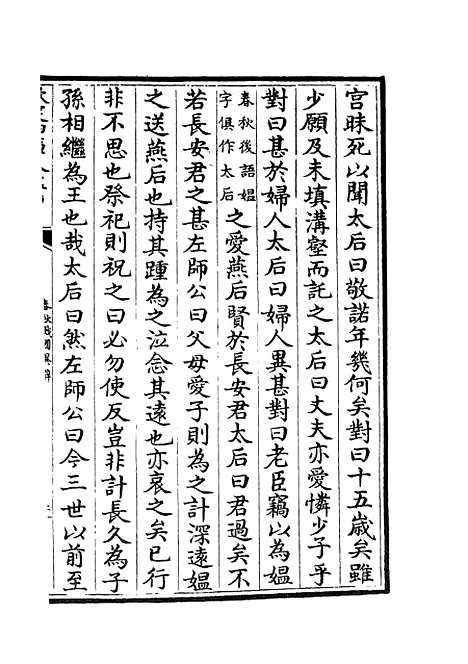 宫昧死以聞太后曰敬諾年幾何矣對曰十五歳矣雖
少願及未填溝壑而託之太后曰丈夫亦愛憐少子乎
對曰甚於婦人太后曰婦人異甚對曰老臣竊以為媪
春秋後語媪
字俱作太后
之愛燕后賢於長安君太后曰君過矣不
若長安君之甚左師公曰父母愛子則為之計深遠媪
之送燕后也持其踵為之泣念其遠也亦哀之矣已行
非不思也祭祀則祝之曰必勿使反豈非計長久為子
孫相繼為王也哉太后曰然左師公曰今三世以前至
春秋戰國異辭